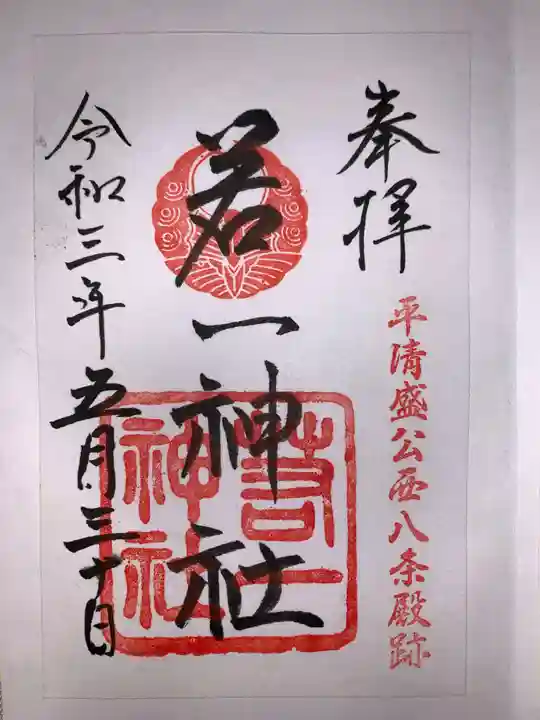 奉拝
平清盛公西八条殿跡
若一神社
若一
神社
令和三年五月三十日